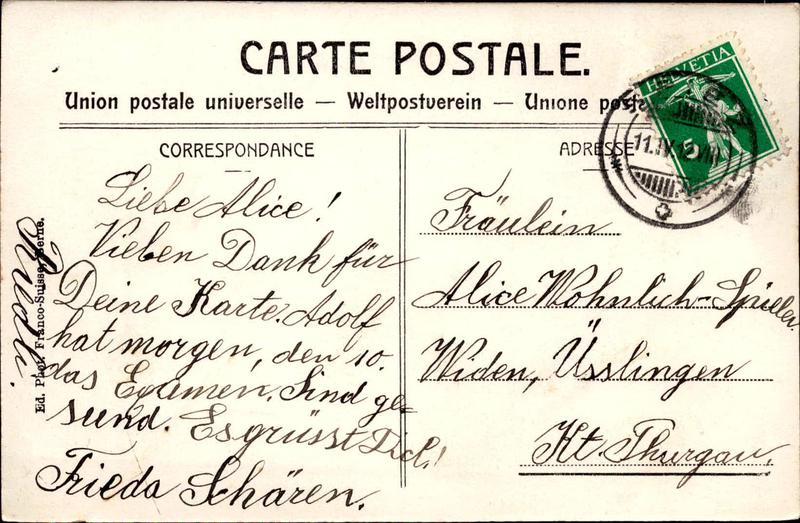 CARTE POSTALE.
Union postale universelle — Weltpostverein — Unione posta
CORRESPONDANCE
ADRESSE
HELVETIA
5
11.IV.12.VIII
Liebe Alice!
Vielen Dank für
Deine Karte. Adolf
hat morgen, den 10.
das Examen. Sind ge-
sund. Es grüsst Dich!
Frieda Schären.
Ed. Phot. Franco-Suisse, Berne.
Fräulein
Alice Wohnlich-Spieler
Widen, Üsslingen
Kt. Thurgau.